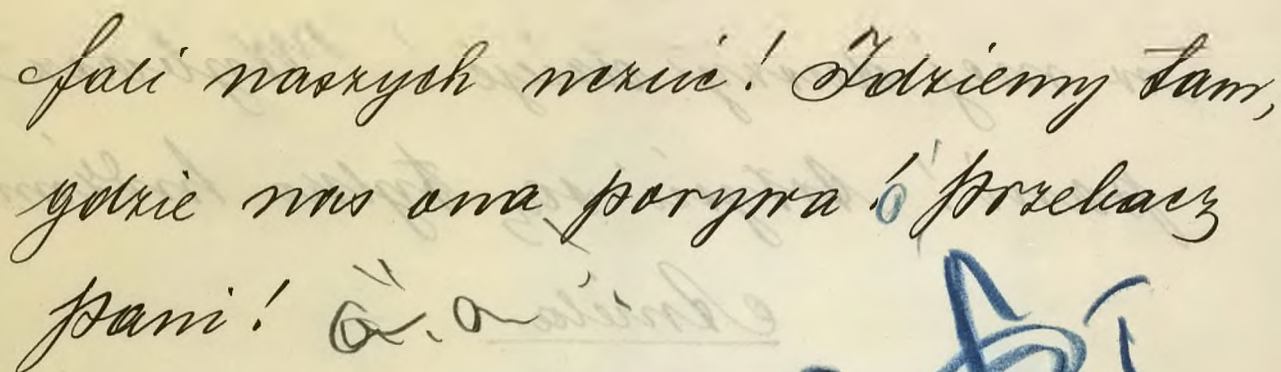 fali naszych uczuć! Idziemy tam,
gdzie nas ona porywa! Przebacz
pani!